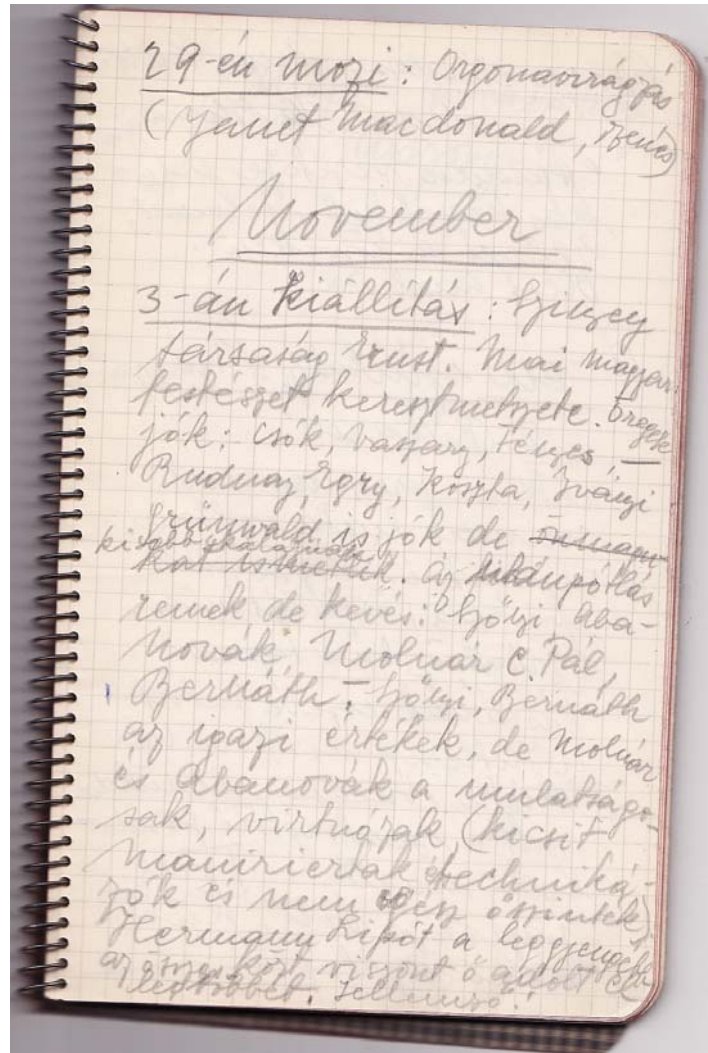 29-én mozi: Orgonavirágzás
(Jenet Macdonald, zenés)
November
3-án kiállítás: Szinyey
társaság Ernst. Mai magyar
festészet keresztmetszete. Öregek
jók: Csók, Vaszary, Fényes, –
Rudnay, Egry, Koszta, Iványi
Grünwald is jók de
kisebb
az utánpótlás
remek de kevés: Szőnyi Aba-
Novák, Molnár C. Pál,
Bernáth. Szőnyi, Bernáth
az igazi értékek, de Molnár
és Abanovák a mulatságo-
sak, virtuózak (kicsit
maniriertak techniká-
jók és nem egész őszinték)
Hermann Lipót a leggyengébb
az
viszont ő adott el
legtöbbet. Jellemző!